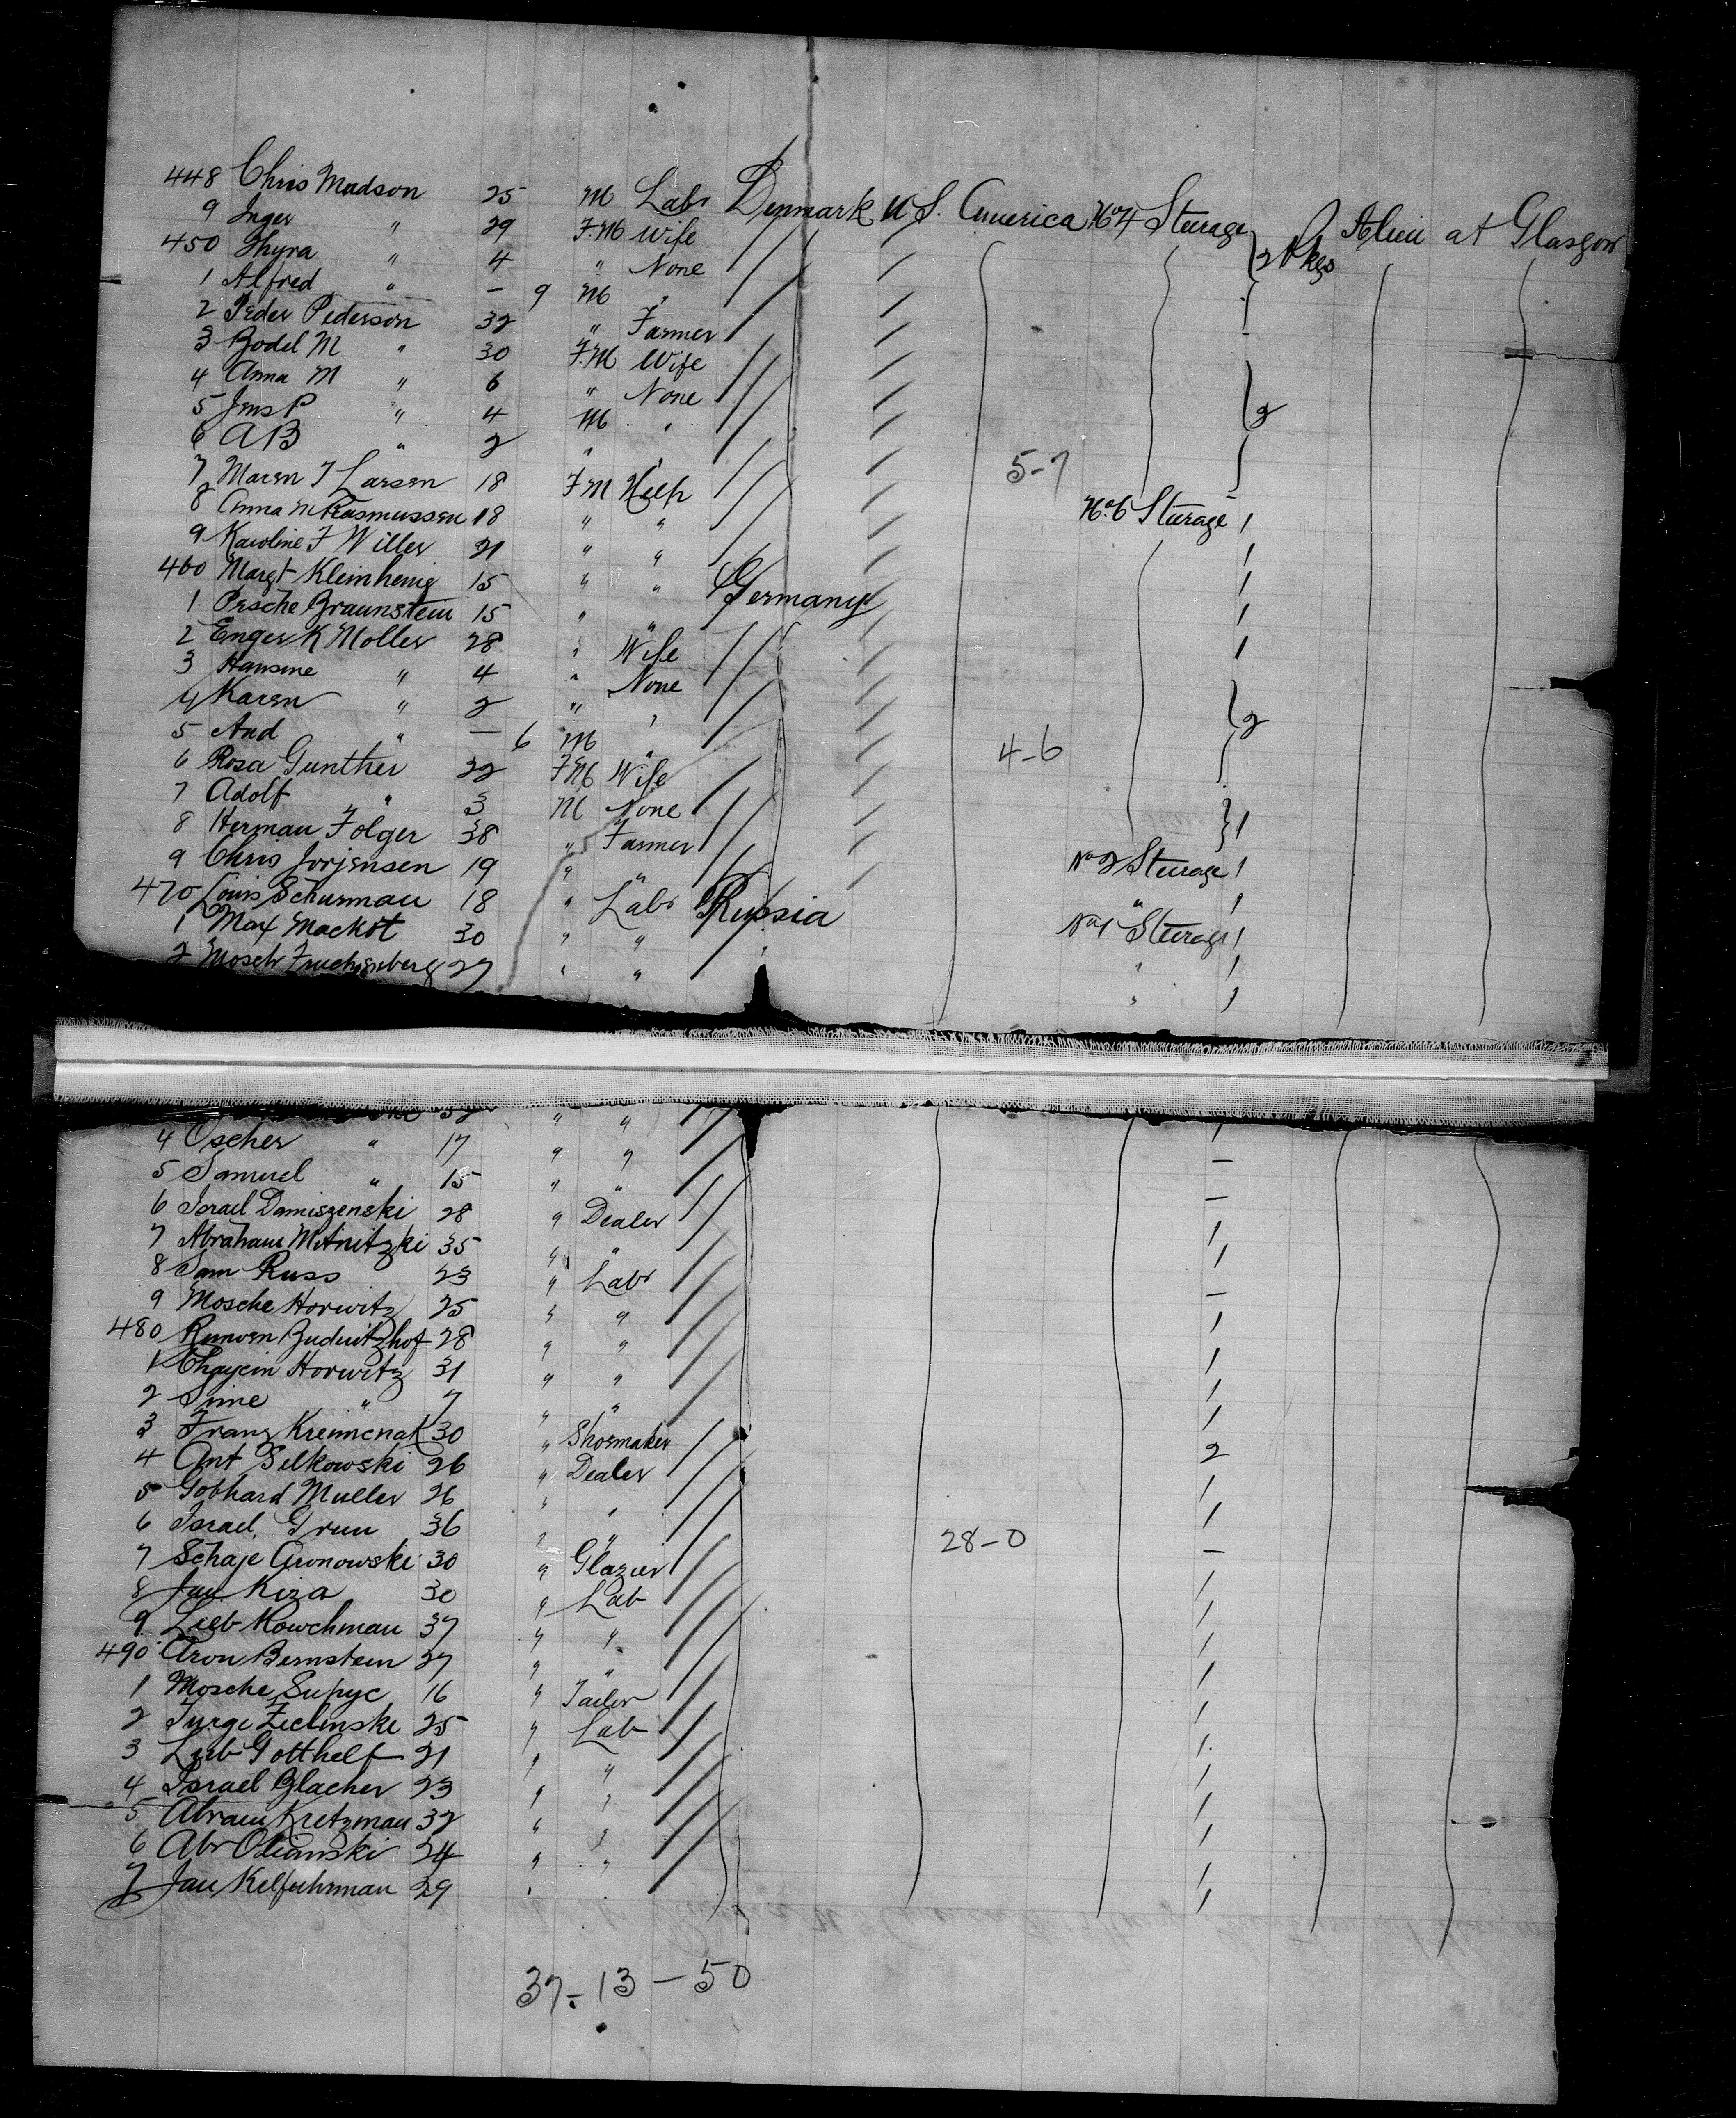 448 Chris Madson 25 M Labr Denmark U.S. America No 4 Steerage 2 Pkgs Alien at Glasgow
9 Inger " 29 F.M Wife
450 Thyra " 4 " None
1 Alfred " — 9 M "
2 Peder Pederson 32 " Farmer
3 Bodel M " 30 F.M Wife
4 Anna M " 6 " None
5 Jens P " 4 M " 2
6 AB " 2 " "
7 Maren J Larsen 18 F M Help 5-7
8 Anna M Rasmussen 18 " " No 6 Steerage 1
9 Karoline F Willer 21 " " 1
460 Margt Kleinhenig 15 " " Germany 1
1 Pesche Braunstein 15 " " 1
2 Enger K Moller 28 " Wife 1
3 Hansine " 4 " None
4 Karen " 2 " " 2
5 And " — 6 M "
6 Rosa Gunther 22 F M Wife 4-6
7 Adolf " 3 M None
8 Herman Folger 38 " Farmer 1
9 Chris Jorjensen 19 " " No 2 Steerage 1
470 Louis Schurman 18 " Labr Russia " 1
1 Max Mackot 30 " " No 1 Steerage 1
2 Mosch 27 " " " 1
32 " "
4 Oscher " 17 " " 1
5 Samuel " 15 " " —
6 Israel Damiszenski 28 " Dealer —
7 Abraham Mitnitzki 35 " " 1
8 Sam Russ 23 " Labr 1
9 Mosche Horwitz 25 " " —
480 Rumven Buduitzhof 28 " " 1
1 Chayein Horwitz 31 " " 1
2 Sime " 7 " " 1
3 Franz Kreimcnak 30 " Shoemaker 1
4 Ant Selkowski 26 " Dealer 2
5 Gobhard Muller 26 " " 1
6 Israel Grun 36 " " 28-0 1
7 Schaje Aronowski 30 " Glazier —
8 Jan Kiza 30 " Lab 1
9 Lieb Kowchman 37 " " 1
490 Aron Bernstein 27 " " 1
1 Mosche Supyc 16 " Tailor 1
2 Jurge Zielinske 25 " Lab 1
3 Leib Gotthelf 21 " " 1
4 Israel Blacher 23 " " 1
5 Abram Kretzman 32 " " 1
6 Abr Olianski 24 " " 1
7 Jan Kelfuhrman 29 " " 1
37-13-50